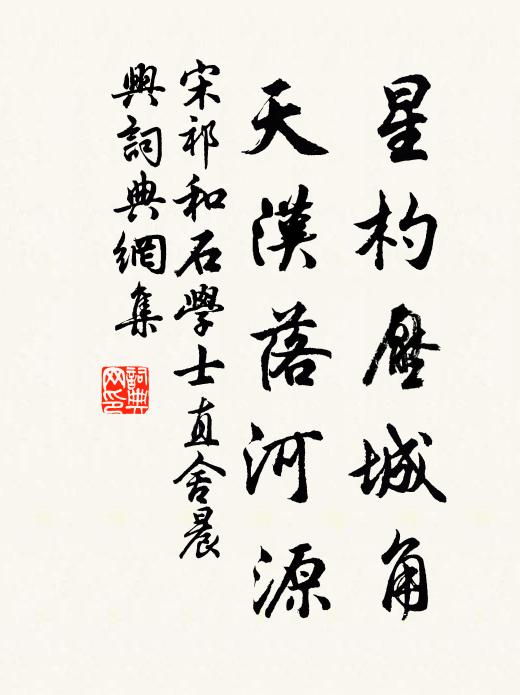 星杓壓城角
天漢落河源
宋祁和石學士直舍晨
興詞典網集
詞典
网印